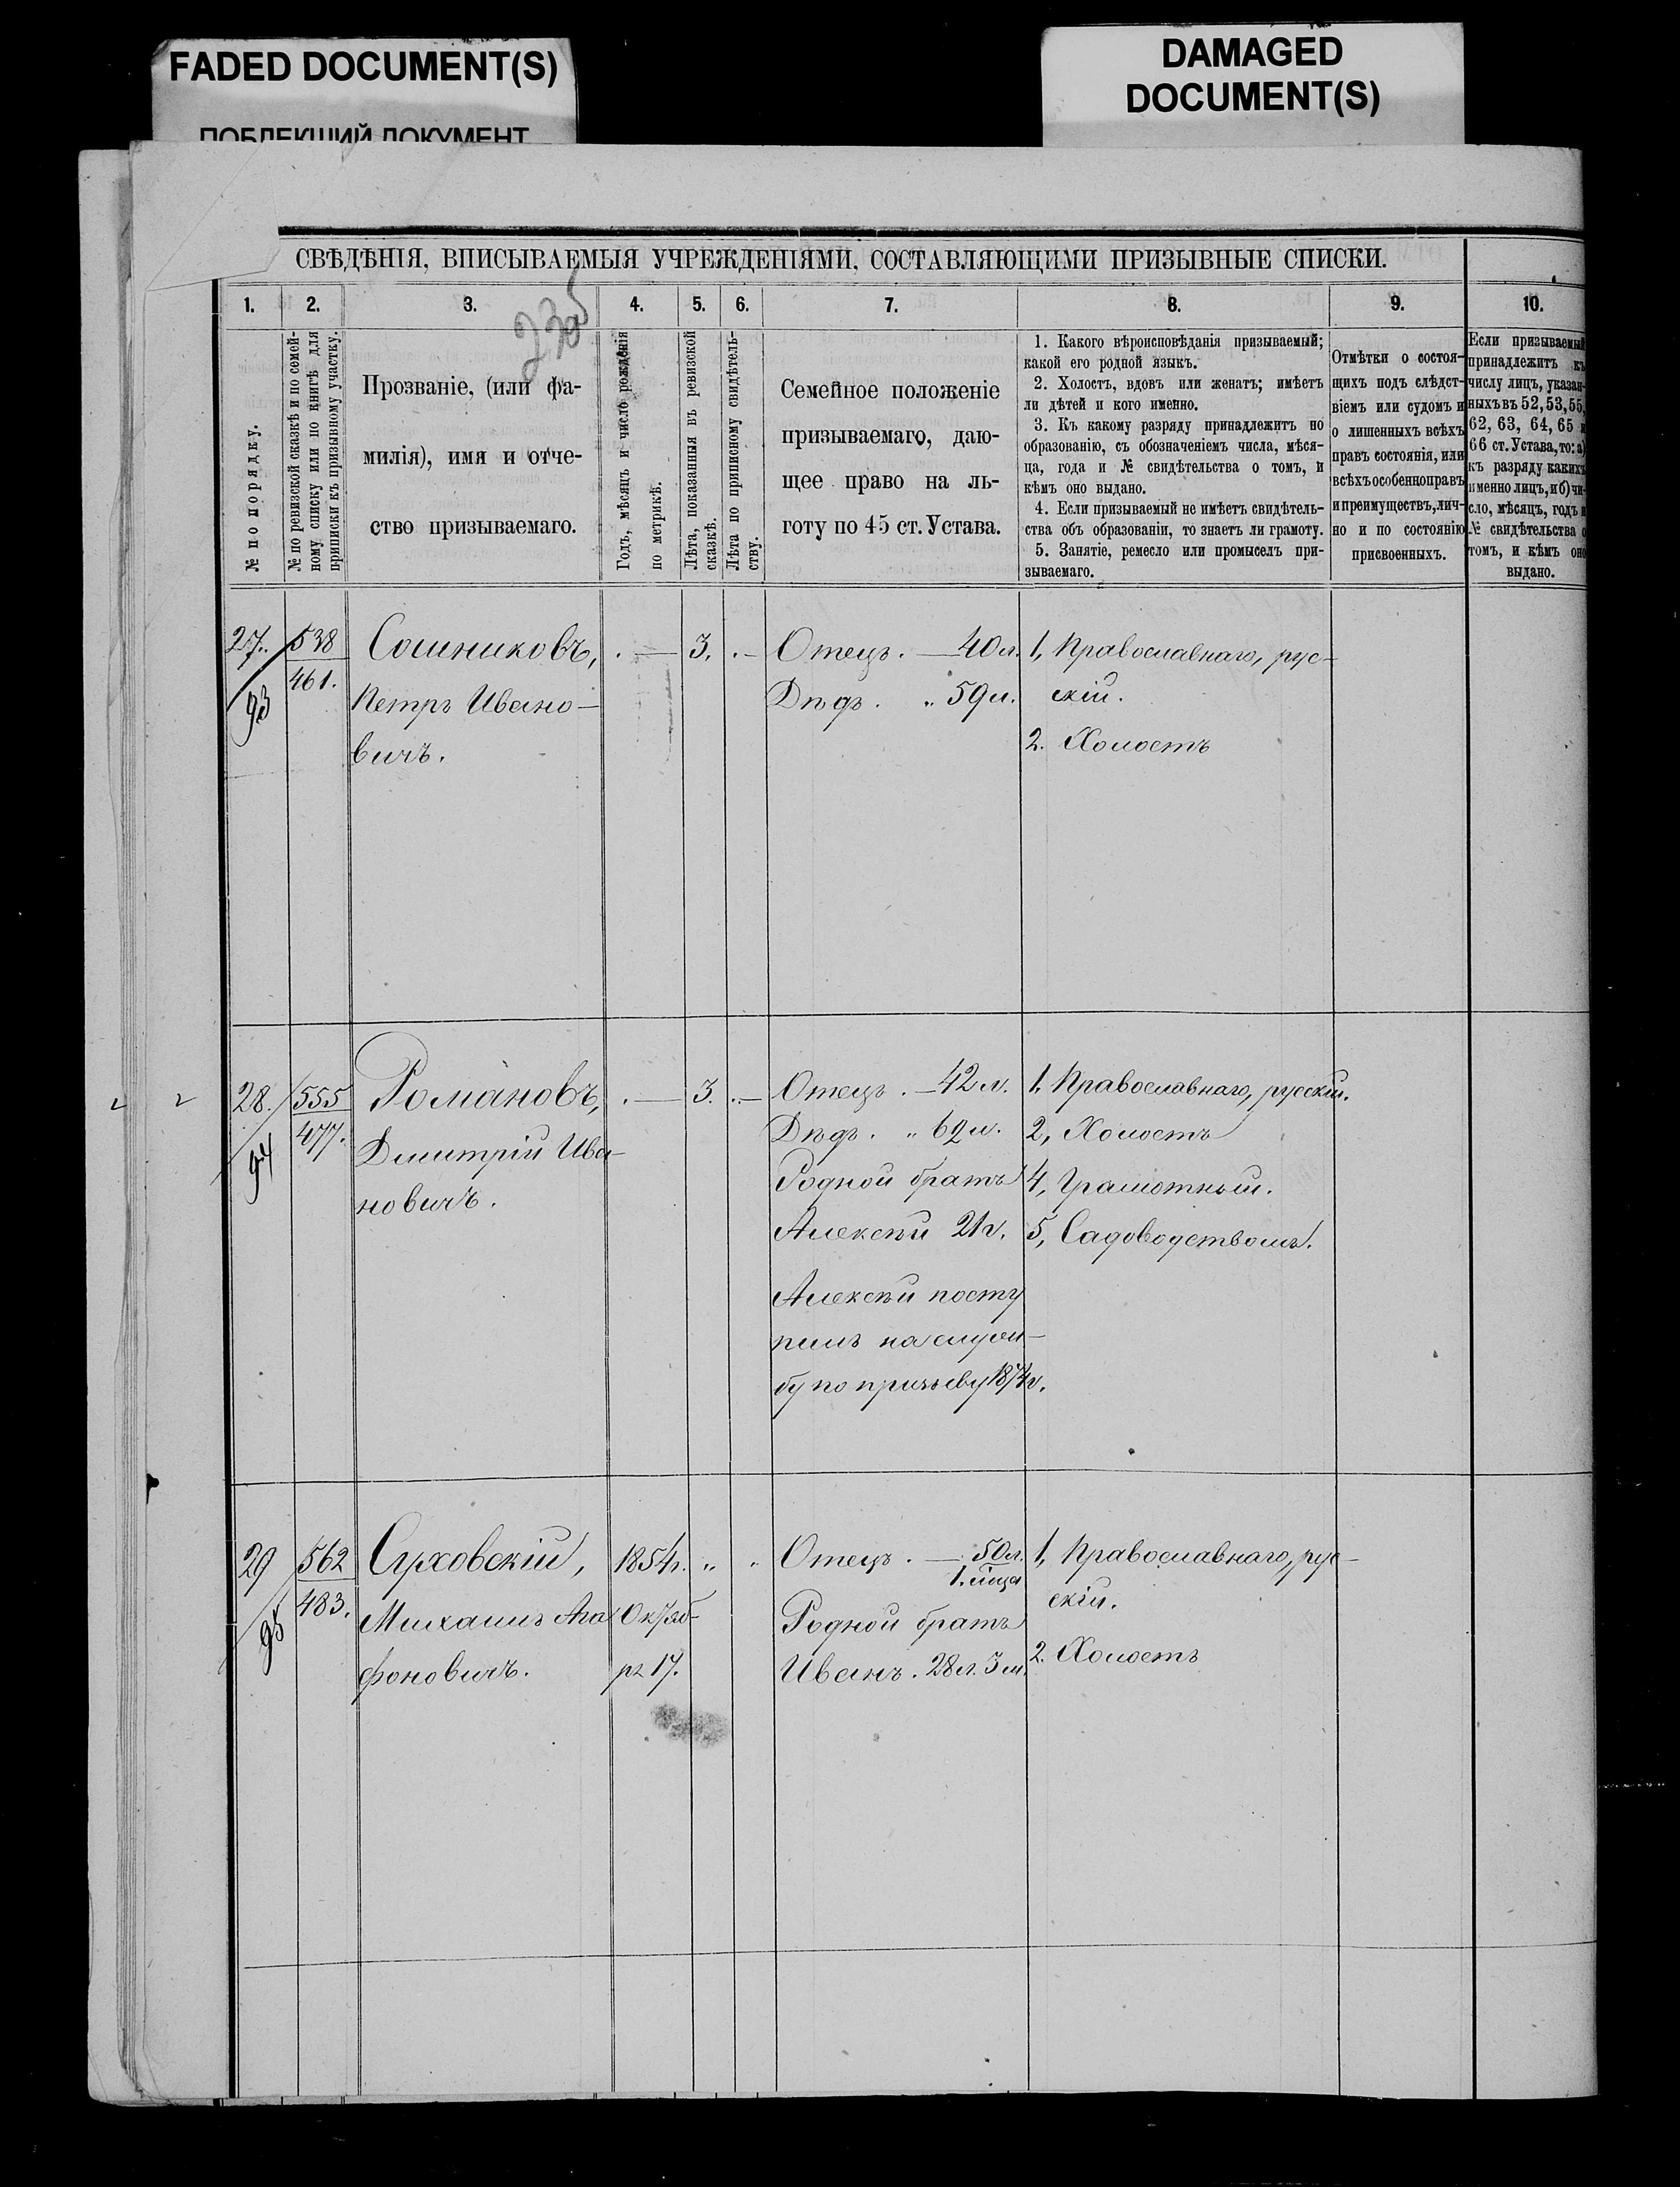 FADED DOCUMENT(S)
ПОБЛЕКШИЙ ДОКУМЕНТ
DAMAGED
DOCUMENT(S)
СВѢДѢНІЯ, ВПИСЫВАЕМЫЯ УЧРЕЖДЕНІЯМИ, СОСТАВЛЯЮЩИМИ ПРИЗЫВНЫЕ СПИСКИ.
1. 2. 3. 4. 5. 6. 7. 8. 9. 10.
№ по порядку.
№ по ревизской сказкѣ и по семей-
ному списку или по книгѣ для
приписки къ призывному участку.
Прозваніе, (или фа-
милія), имя и отче-
ство призываемаго.
Годъ, мѣсяцъ и число рожденія
по метрикѣ.
Лѣта, показанныя въ ревизской
сказкѣ.
Лѣта по приписному свидѣтель-
ству.
Семейное положеніе
призываемаго, даю-
щее право на ль-
готу по 45 ст. Устава.
1. Какого вѣроисповѣданія призываемый;
какой его родной языкъ.
2. Холостъ, вдовъ или женатъ; имѣетъ
ли дѣтей и кого именно.
3. Къ какому разряду принадлежитъ по
образованію, съ обозначеніемъ числа, мѣся-
ца, года и № свидѣтельства о томъ, и
кѣмъ оно выдано.
4. Если призываемый не имѣетъ свидѣтель-
ства объ образованіи, то знаетъ ли грамоту.
5. Занятіе, ремесло или промыселъ при-
зываемаго.
Отмѣтки о состоя-
щихъ подъ слѣдст-
віемъ или судомъ и
о лишенныхъ всѣхъ
правъ состоянія, или
всѣхъ особенно правъ
и преимуществъ, лич-
но и по состоянію
присвоенныхъ.
Если призываемый
принадлежитъ къ
числу лицъ, указан-
ныхъ въ 52, 53, 55,
62, 63, 64, 65 и
66 ст. Устава, то: а)
къ разряду какихъ
именно лицъ, и б) чи-
сло, мѣсяцъ, годъ и
№ свидѣтельства о
томъ, и кѣмъ оно
выдано.
27. 538 Сошниковъ, . — 3. . — Отецъ. — 40 л. 1, Православнаго, рус-
93 461. Петръ Ивано- Дѣдъ. „ 59 л. скій.
вичъ. 2. Холостъ
28. 555 Романовъ, . — 3. . — Отецъ. — 42 л. 1, Православнаго, русскій.
94 477. Дмитрій Ива- Дѣдъ. „ 62 л. 2, Холостъ
новичъ. Родной братъ 4, Грамотный.
Алексѣй 21 г. 5, Садоводствомъ.
Алексѣй посту
пилъ на служ-
бу по призыву 1874 г.
29 562 Суховскій, 1854 г. „ „ Отецъ. — 50 л. 1, Православнаго, рус-
95 483. Михаилъ Ага Октяб- Родной братъ скій.
фоновичъ. ря 17. Иванъ. 28 л. 3 м. 2. Холостъ